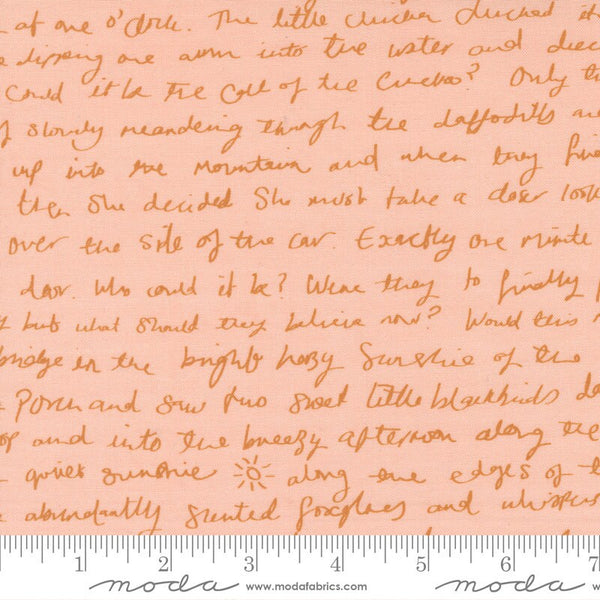 at one o'clock. The little chicken clucked
dipping one arm into the water and
Could it be the call of the Cuckoo? Only
slowly meandering though the daffodills
up into the mountain and when they
then she decided She must take a closer look
over the side of the car. Exactly one minute
door. Who could it be? Were they to finally
but what should they believe now? Would this
bridge in the bright hazy Sunshine of the
Porch and saw two sweet little blackbirds
and into the breezy afternoon along the
quiet sunshine along the edges of
abundantly scented foxgloves and whispers
1 2 3 4 5 6 7
moda www.modafabrics.com moda www.modafabrics.com